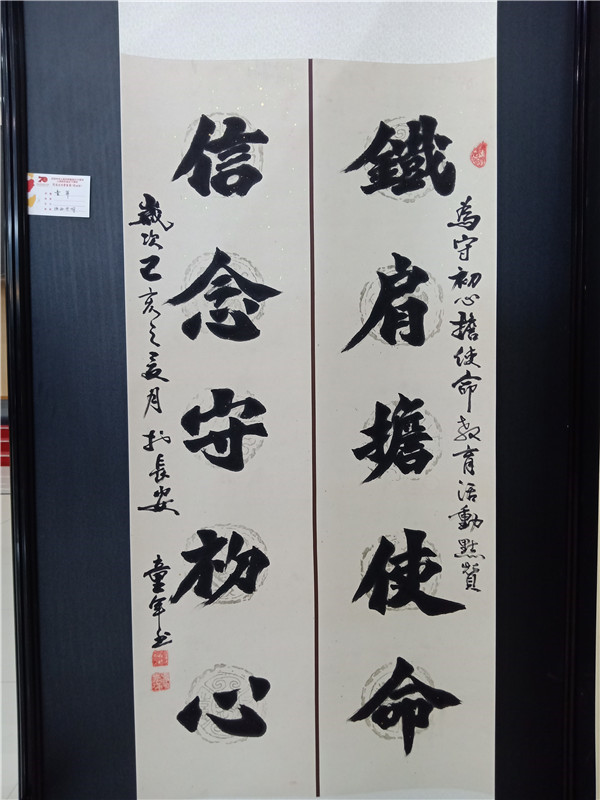 為守初心擔使命教育活動點贊
鐵肩擔使命
信念守初心
歲次己亥之夏月於長安
童年书
70
童年